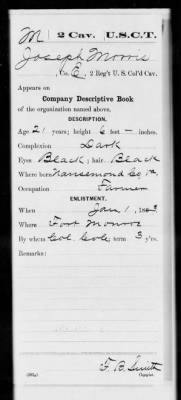 M | 2 Cav. | U.S.C.T.
Joseph Morris
, Co. E, 2 Reg't U. S. Col'd Cav.
Appears on
Company Descriptive Book
of the organization named above.
DESCRIPTION.
Age 21 years; height 6 feet — inches.
Complexion Dark
Eyes Black; hair Black
Where born Nansemond Co, Va.
Occupation Farmer
ENLISTMENT.
When Jan 1, 186
Where Fort Monroe
By whom Col. Cole; term 3 y'rs.
Remarks:
F. B. Smith
Copyist.